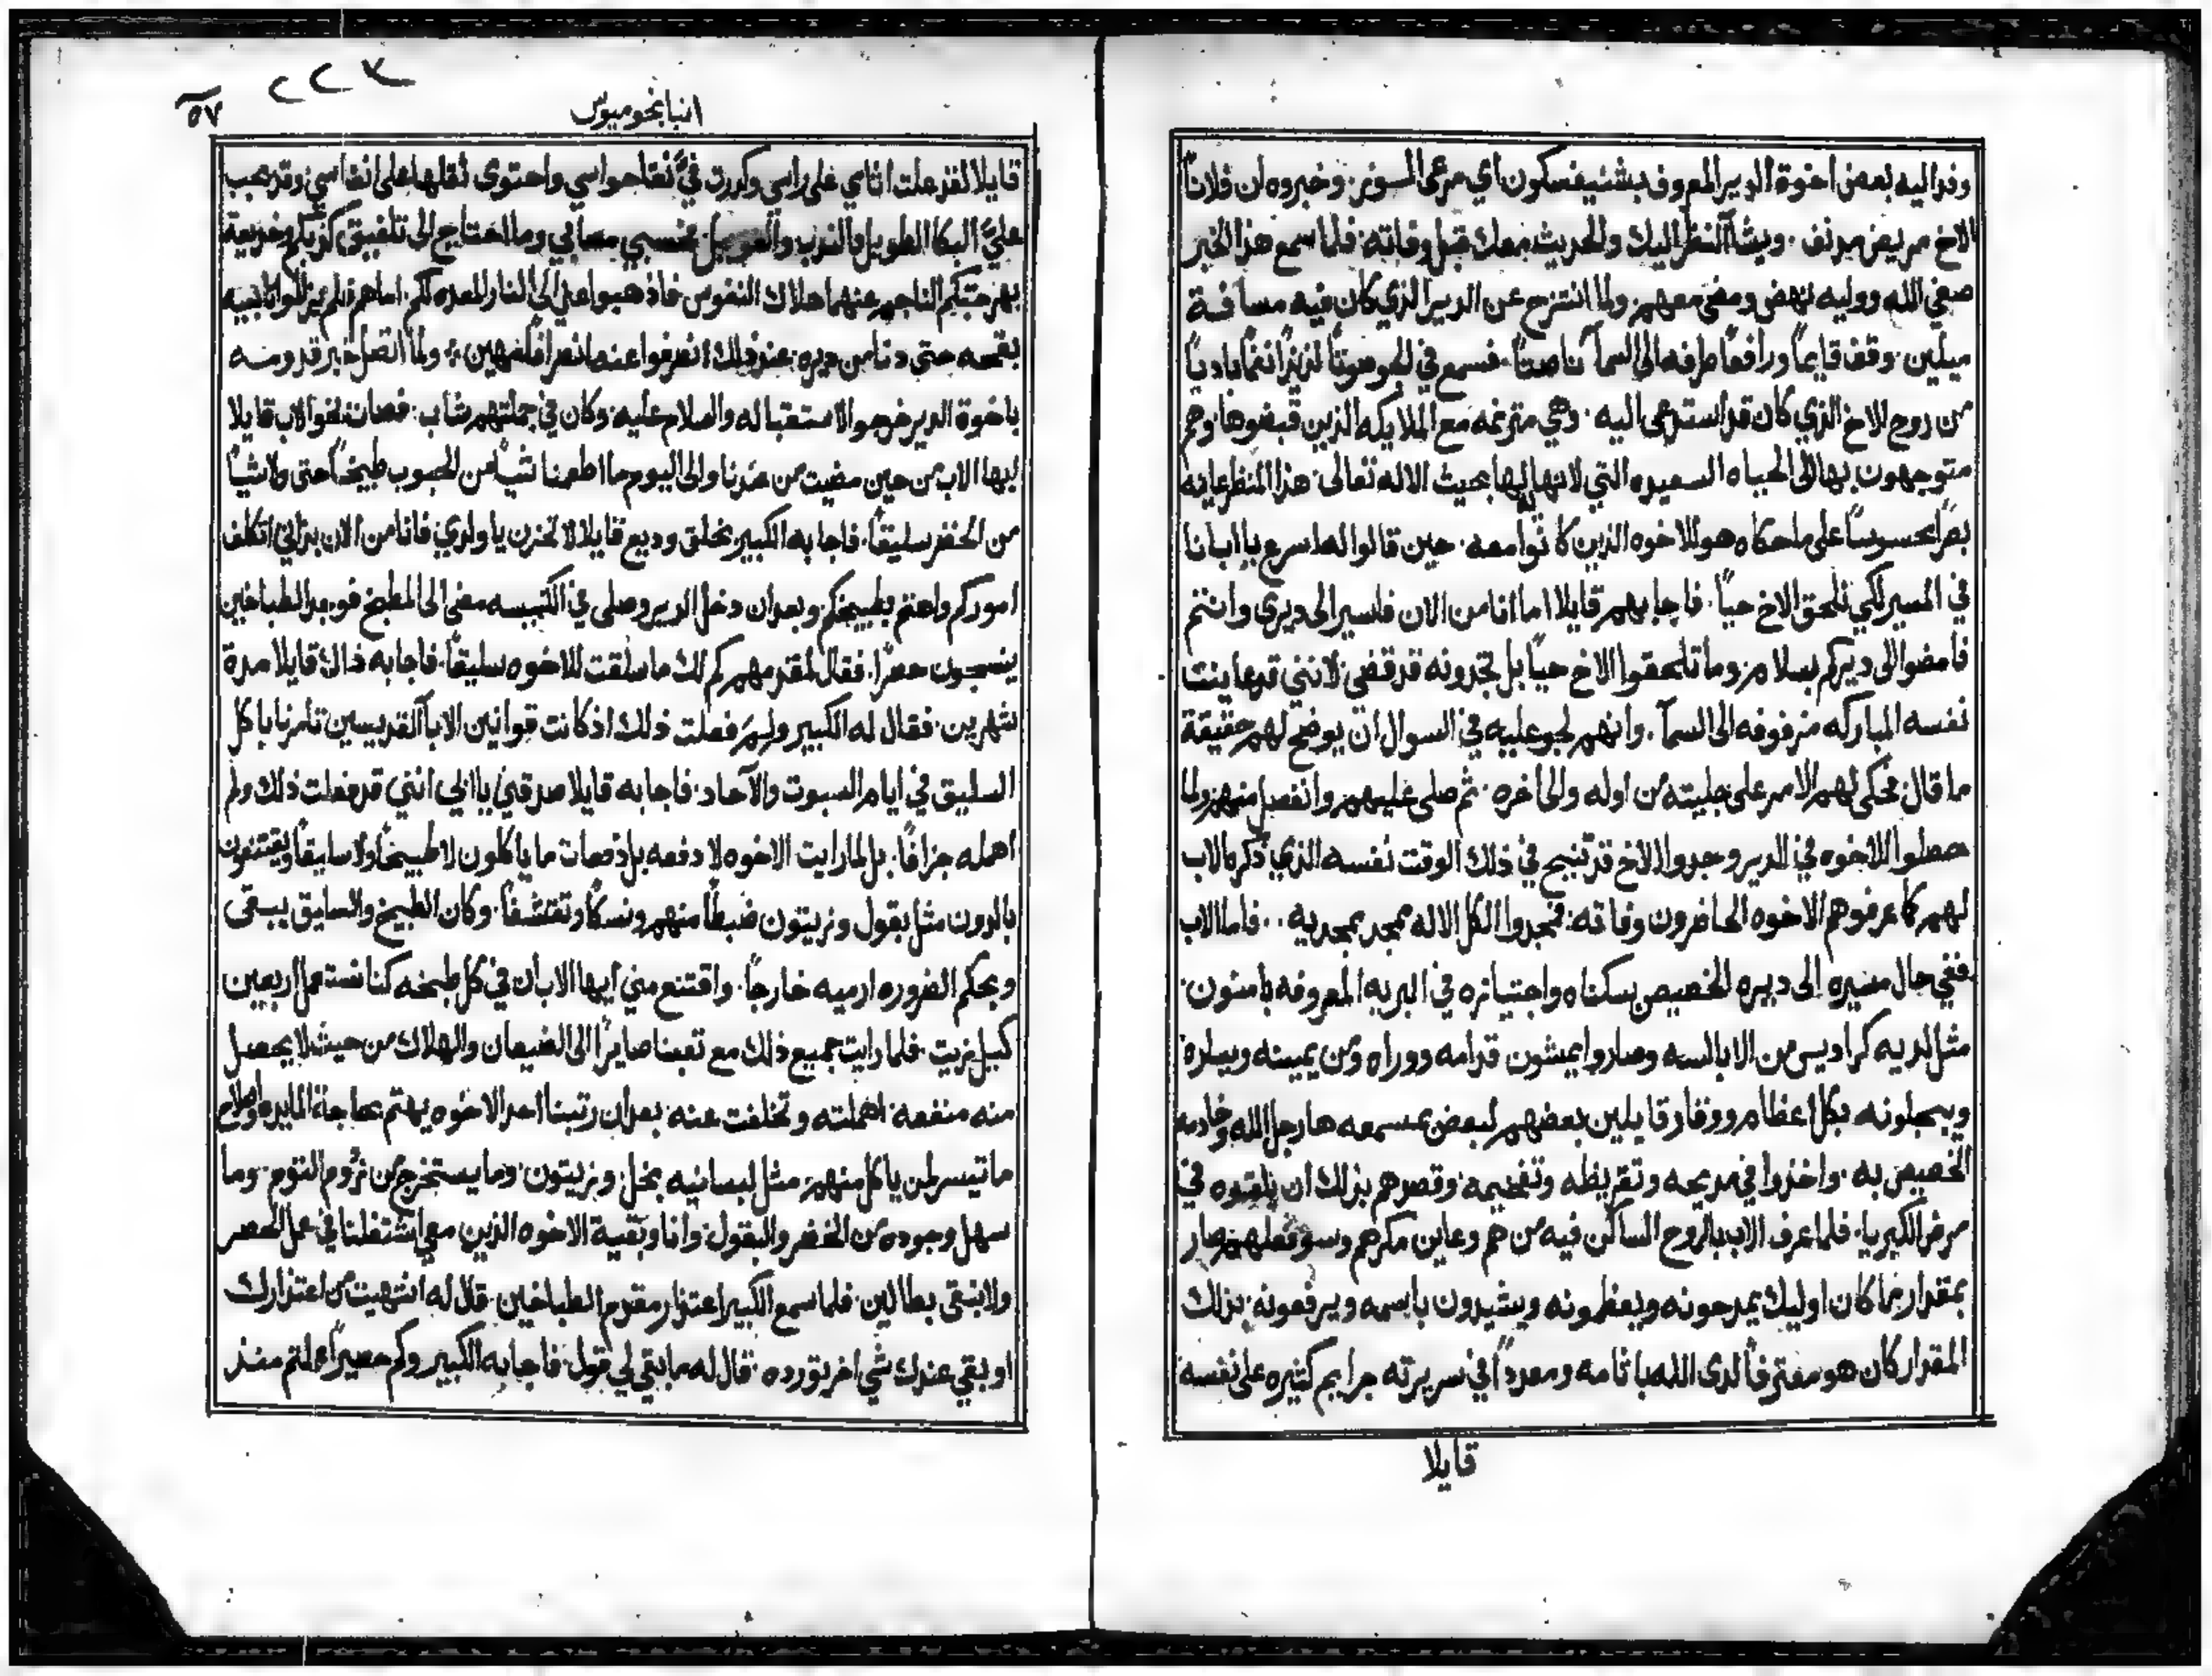 وفد اليه بعض اخوة الدير المعروف بشنيفسكون اي مرعى الموز وخبروه ان فلاناً
الاخ مريض مدنف. ويشآ النظر اليك والحديث معك قبل وفاته. فلما سمع هذا الخبر
صفي الله ووليه نهض ومضى معهم ولما انتزح عن الدير الذي كان فيه مسافة
ميلين. وقف قايماً ورافعاً طرفه الى السمآ ناصتاً. فسمع في الجو صوتاً لذيذاً نغماً بادياً
من روح الاخ الذي كان قد استدعى اليه. وهي مترنمه مع الملايكه الذين قبضوها وهم
متوجهون بها الى الحياه السعيده التي لانهاية لها بحيث الاله تعالى. هذا المنظر عاينه
بصراً محسوساً على ما حكاه هو للاخوه الذين كانوا معه. حين قالوا له اسرع يا ابانا
في المسير لكي نلحق الاخ حياً. فاجابهم قايلا اما انا من الان فاسير الى ديري وانتم
فامضوا الى ديركم بسلام وما تلحقوا الاخ حياً بل تجدونه قد قضي لانني قد عاينت
نفسه المباركه مزفوفه الى السمآ. وانهم لجو عليه في السوال ان يوضح لهم حقيقة
ما قال فحكى لهم الامر على جليته من اوله والى اخره. ثم صلى عليهم وانفصل منهم ولما
حصلوا الاخوه في الدير وجدوا الاخ قد تنيح في ذلك الوقت نفسه الذي ذكره الاب
لهم كما عرفوهم الاخوه الحاضرون وفاته. فمجدوا الكل الاله ممجد بمجديه.. فاما الاب
ففي حال مصيره الى ديره الخصيص بسكناه واجتيازه في البريه المعروفه بامنون.
مثل لديه كراديس من الابالسه وصاروا يمشون قدامه ووراه ومن يمينه ويساره
ويبجلونه بكل اعظام ووقار قايلين بعضهم لبعض بمسمعه ها رجل الله وخادمه
الخصيص به. واخذوا في مديحه وتقريظه وتفخيمه. وقصدهم بذلك ان يلقوه في
مرض الكبريا. فلما عرف الاب بالروح الساكن فيه من هم وعاين مكرهم وسو فعلهم صار
بمقدار ما كان اوليك يمدحونه ويعظمونه ويشيدون باسمه ويرفعونه بذلك
المقدار كان هو معترفاً لدى الله باثامه ومعدداً في سريرته جرايم كثيره على نفسه
قايلا
٢٢٣
٥٧
انبا بخوميوس
قايلا لقد علت اثامي على راسي وكدرت فيَّ نقا حواسي واحتوى ثقلها على انفاسي وقد يجب
عليَّ البكا الطويل والندب والعويل فحسبي مصابي وما احتاج الى تلفيق كذبكم وخديعة
بهرجتكم الناجم عنهما هلاك النفوس فاذهبوا عني الى النار المعده لكم اما هم فلم يزالوا
بقحه حتى دنا من ديره عند ذلك انصرفوا عنه انصرافاً مهين: ولما اتصل خبر قدومه
باخوة الدير خرجوا لاستقباله والسلام عليه. وكان في جملتهم شاب. فصات نحو الاب قايلا
ايها الاب من حين مضيت من عندنا والى اليوم ما اطعمنا شياً من الحبوب طبيخاً حتى ولا شياً
من الخضر سليقاً. فاجابه الكبير بخلق وديع قايلا لا تحزن يا ولدي فانا من الان بذاتي اتكلف
اموركم واهتم بطبيخكم وبعد ان دخل الدير وصلى في الكنيسه مضى الى المطبخ فوجد الطباخين
ينسجون حصراً. فقال لمقدمهم كم لك ما سلقت للاخوه سليقاً. فاجابه ذاك قايلا مدة
شهرين. فقال له الكبير ولِمَ فعلت ذلك اذ كانت قوانين الابآ القديسين تامرنا باكل
السليق في ايام السبوت والآحاد. فاجابه قايلا صدقني يا ابي انني قد فعلت ذلك ولم
اهمله جزافاً. بل لما رايت الاخوه لا دفعه بل دفعات ما ياكلون لا طبيخاً ولا سليقاً ويقتنعون
بالدون مثل بقول وزيتون ضبطاً منهم ونسكاً وتقشفاً. وكان الطبيخ والسليق يبقى
وبحكم الضروره ارميه خارجاً. واقتنع مني ايها الاب ان في كل طبخه كنا نستعمل اربعين
كيل زيت. فلما رايت جميع ذلك مع تعبنا صايراً الى الضيعان والهلاك من حيث لا يحصل
منه منفعه. اهملته وتخلفت عنه. بعد ان رتبنا احد الاخوه يهتم بحاجة المايده واصلاح
ما تيسر لمن ياكل منهم. مثل لبسانيه بخل وزيتون. وما يستخرج من نزوم الثوم. وما
سهل وجوده من الخضر والبقول. وانا وبقية الاخوه الذين معي اشتغلنا في عمل الحصر
ولا نبقى بطالين. فلما سمع الكبير اعتذار مقدم الطباخين. قال له انتهيت من اعتذارك
او بقي عندك شي اخر تورده. قال له ما بقي لي قول. فاجابه الكبير وكم حصيراً عملتم منذ